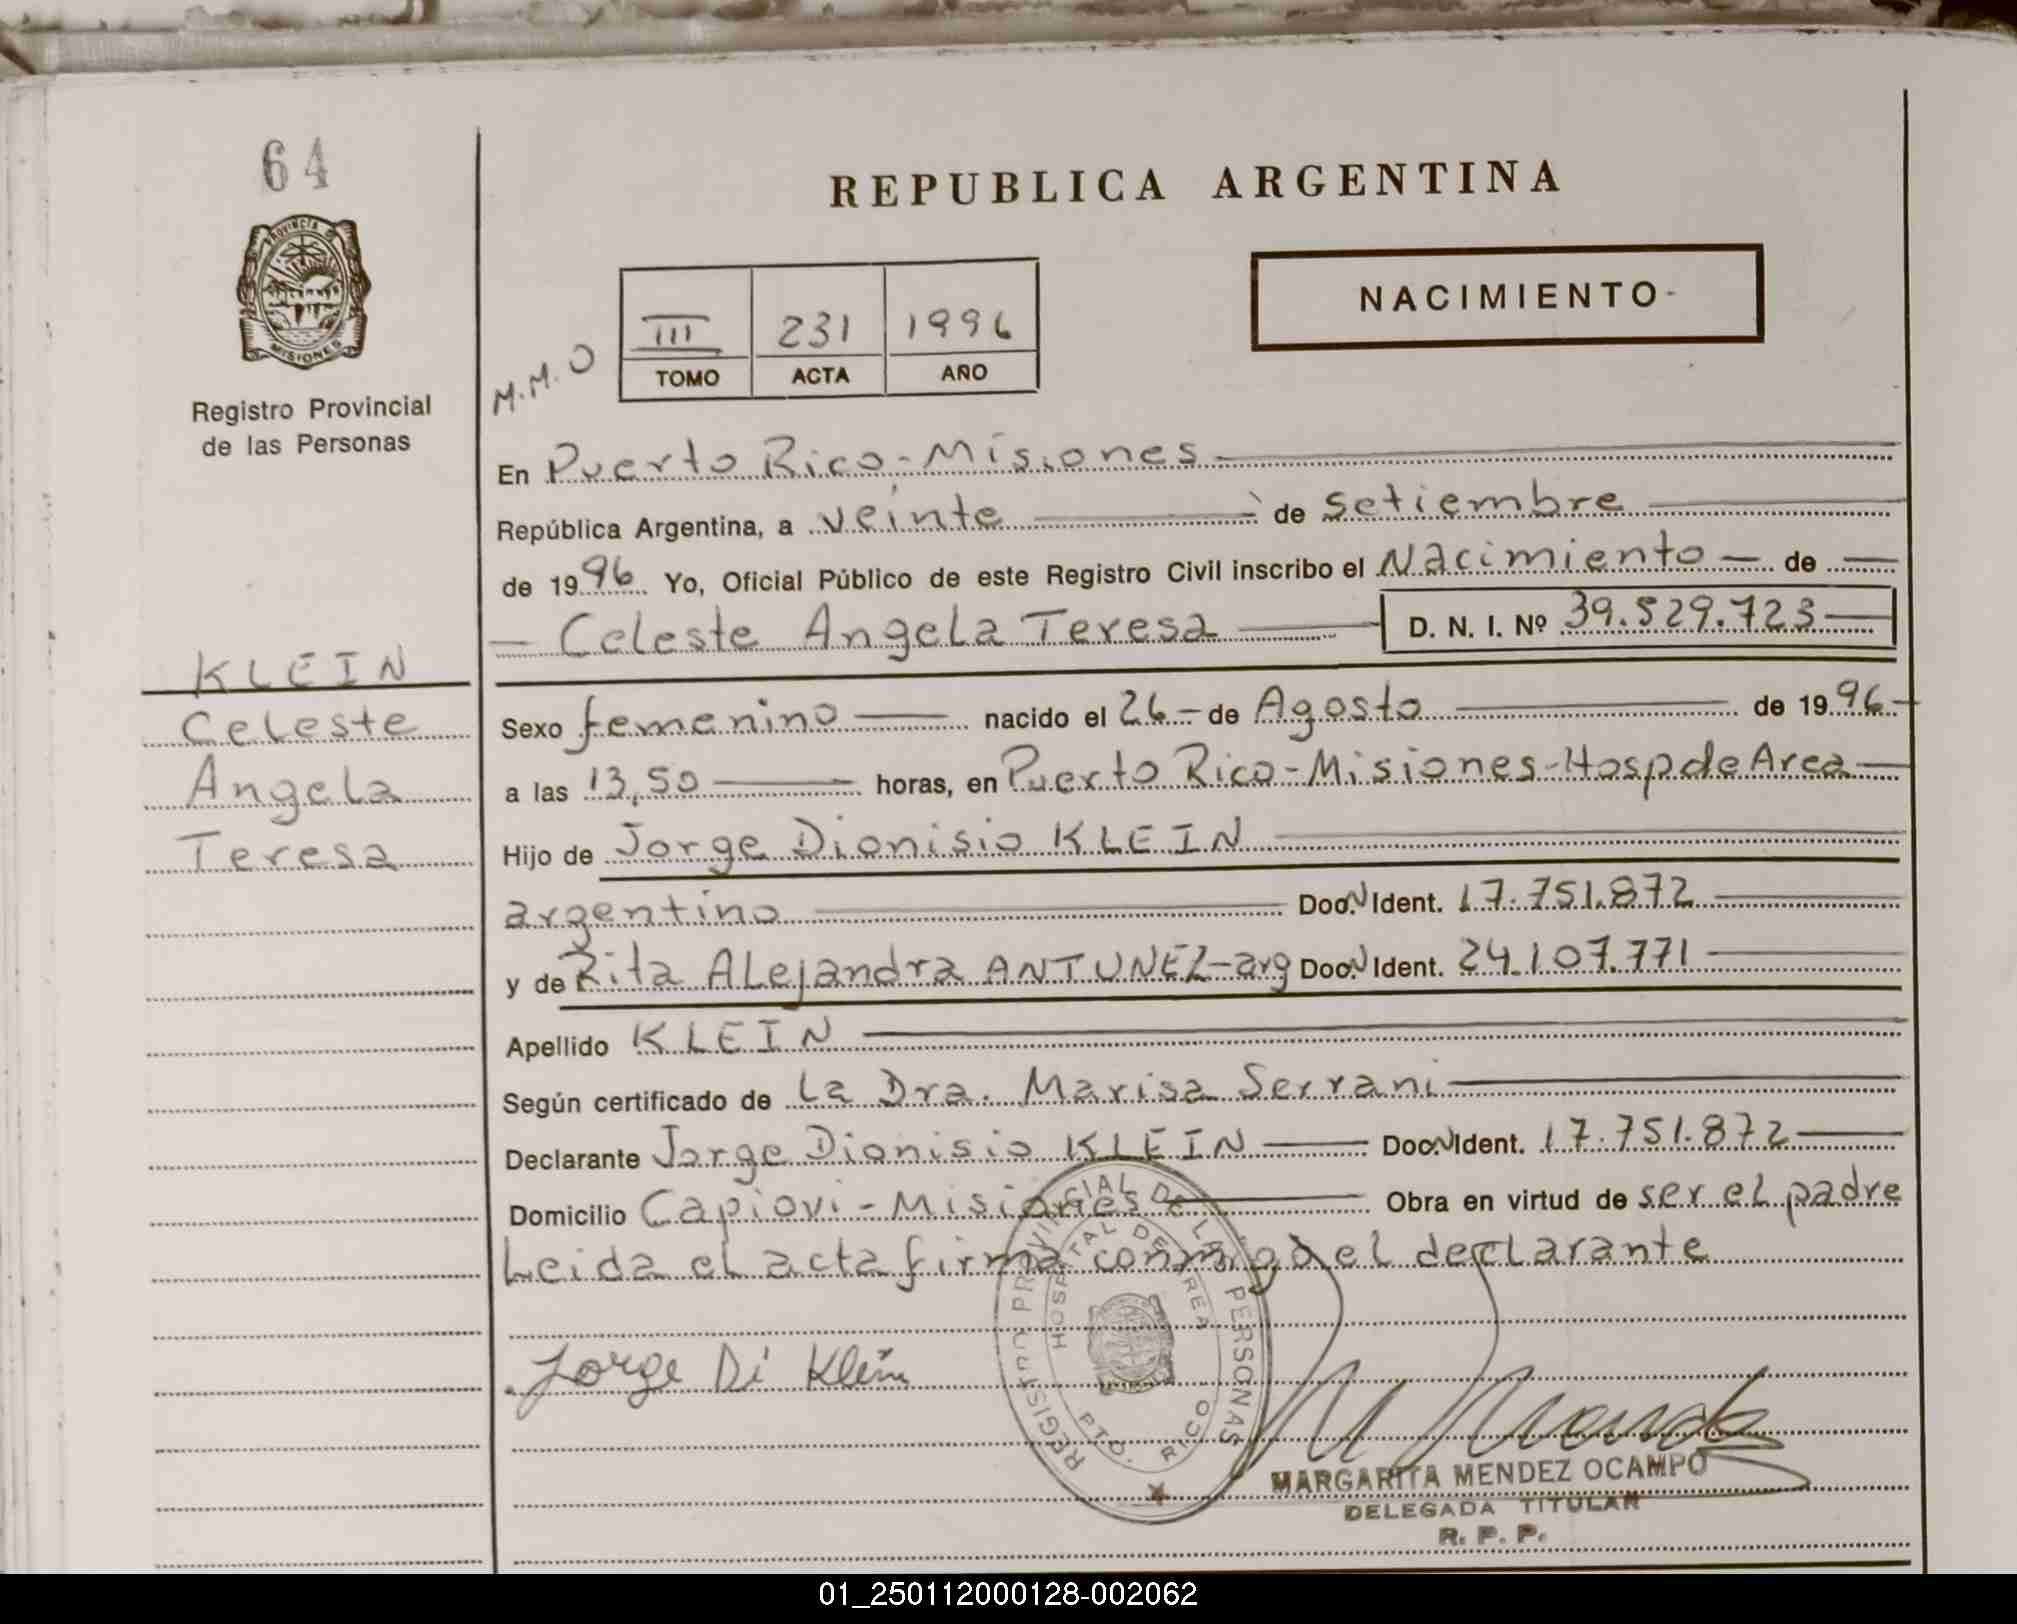 64
PROVINCIA D
MISIONES
Registro Provincial
de las Personas
KLEIN
Celeste
Angela
Teresa
REPUBLICA ARGENTINA
M.M.O
III 231 1996
TOMO ACTA AÑO
NACIMIENTO
En Puerto Rico - Misiones
República Argentina, a veinte de setiembre
de 1996 Yo, Oficial Público de este Registro Civil inscribo el Nacimiento de
Celeste Angela Teresa D. N. I. Nº 39.529.723
Sexo femenino nacido el 26 de Agosto de 1996
a las 13,50 horas, en Puerto Rico - Misiones - Hosp de Area
Hijo de Jorge Dionisio KLEIN
argentino Doc. N Ident. 17.751.872
y de Rita Alejandra ANTUNEZ - arg Doc. N Ident. 24.107.771
Apellido KLEIN
Según certificado de la Dra. Marisa Serrani
Declarante Jorge Dionisio KLEIN Doc. N Ident. 17.751.872
Domicilio Capiovi - Misiones Obra en virtud de ser el padre
Leida el acta firma conmigo el declarante
Jorge Di Klein
REGISTRO PROVINCIAL DE LAS PERSONAS
HOSPITAL DE AREA
PTO. RICO
MARGARITA MENDEZ OCAMPO
DELEGADA TITULAR
R. P. P.
01_250112000128-002062